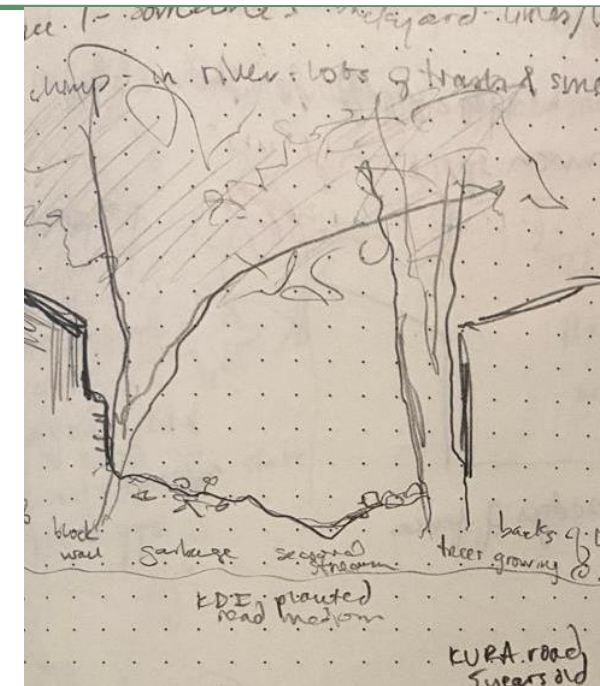 someone's backyard - lines/
dump - in river. lots of trash &
block
wall
garbage
seasonal
stream
trees growing
backs of
KDI planted
road median
KURA road
5 years old